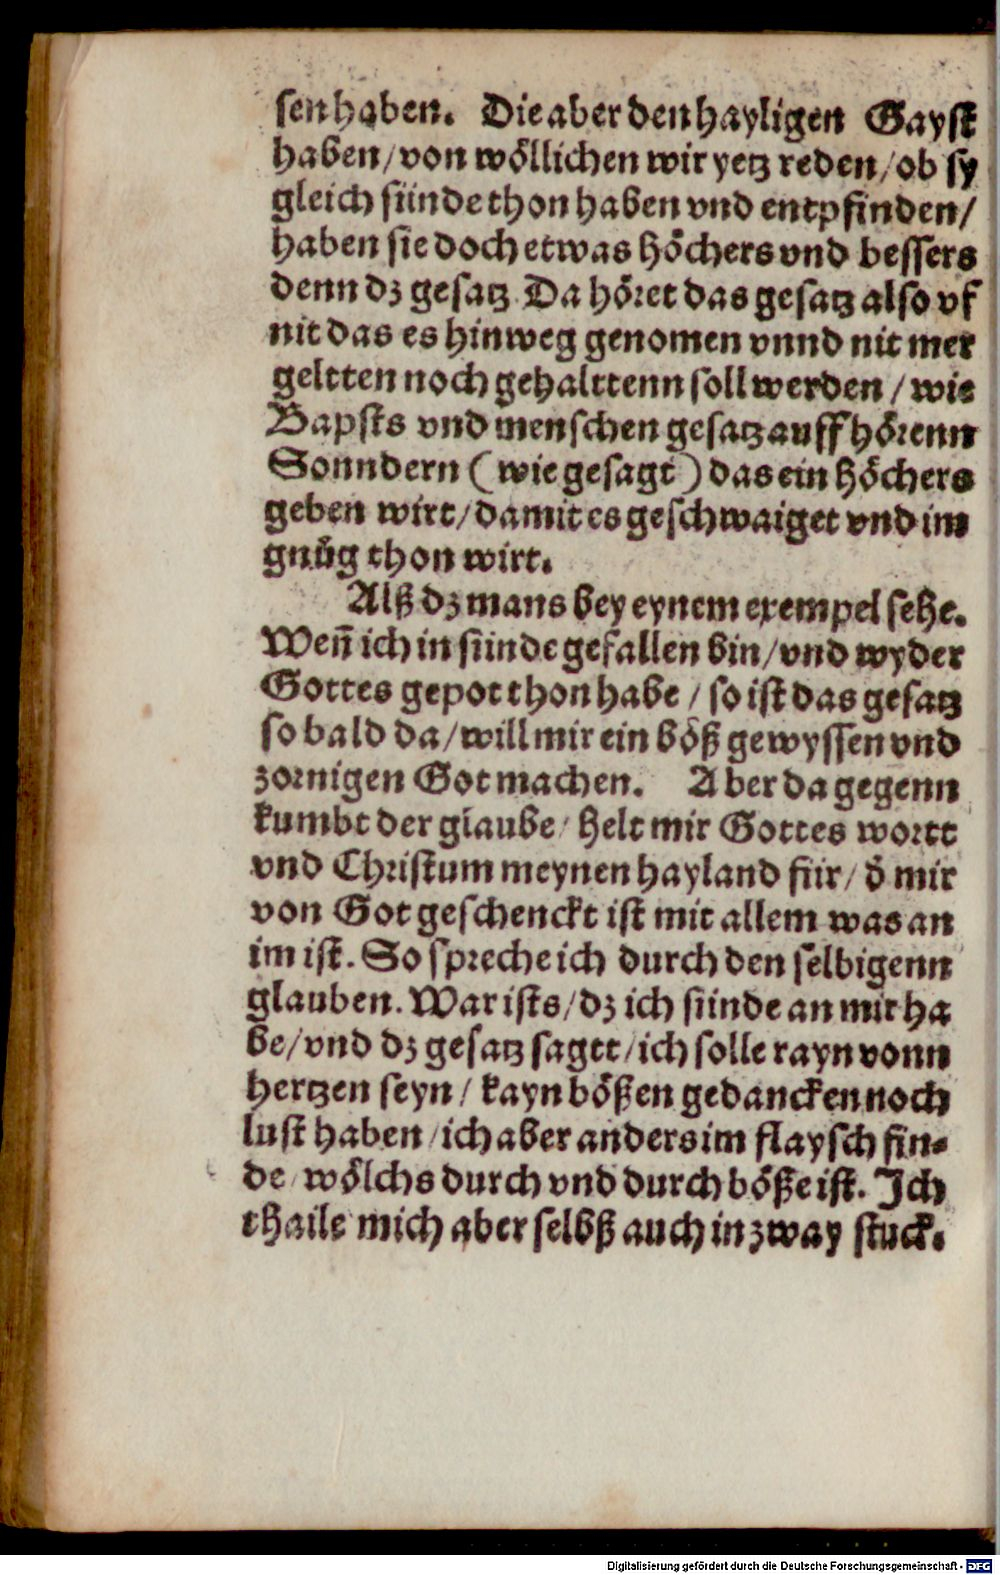 sen haben. Die aber den hayligen Gayst
haben/ von wöllichen wir yetz reden/ ob sy
gleich sünde thon haben vnd entpfinden/
haben sie doch etwas höchers vnd bessers
denn dz gesatz Da höret das gesatz also vf
nit das es hinweg genomen vnnd nit mer
geltten noch gehalttenn soll werden / wie
Bapsts vnd menschen gesatz auff hörenn
Sonndern ( wie gesagt ) das ein höchers
geben wirt/ damit es geschwaiget vnd im
gnůg thon wirt.
Alß dz mans bey eynem exempel sehe.
Weñ ich in sünde gefallen bin/ vnd wyder
Gottes gepot thon habe / so ist das gesatz
so bald da/ will mir ein böß gewyssen vnd
zornigen Got machen. Aber da gegenn
kumbt der glaube/ helt mir Gottes wortt
vnd Christum meynen hayland für/ d̄ mir
von Got geschenckt ist mit allem was an
im ist. So spreche ich durch den selbigenn
glauben. War ists/ dz ich sünde an mir ha
be/ vnd dz gesatz sagtt/ ich solle rayn vonn
hertzen seyn/ kayn bößen gedancken noch
lust haben/ ich aber anders im flaysch fin⸗
de/ wölchs durch vnd durch böße ist. Ich
thaile mich aber selbß auch in zway stuck.
Digitalisierung gefördert durch die Deutsche Forschungsgemeinschaft - DFG